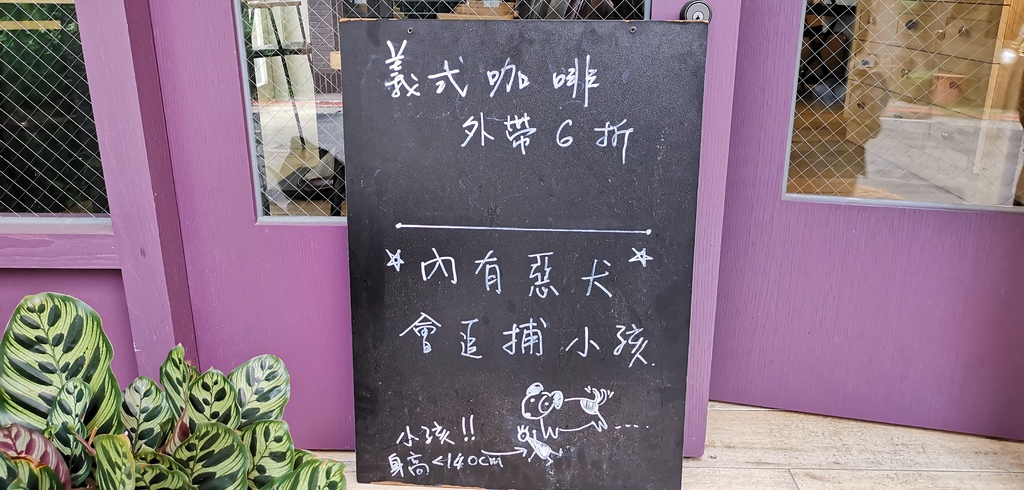 義式咖啡
外帶6折
☆內有惡犬☆
會追捕小孩.
小孩!!
身高<140cm